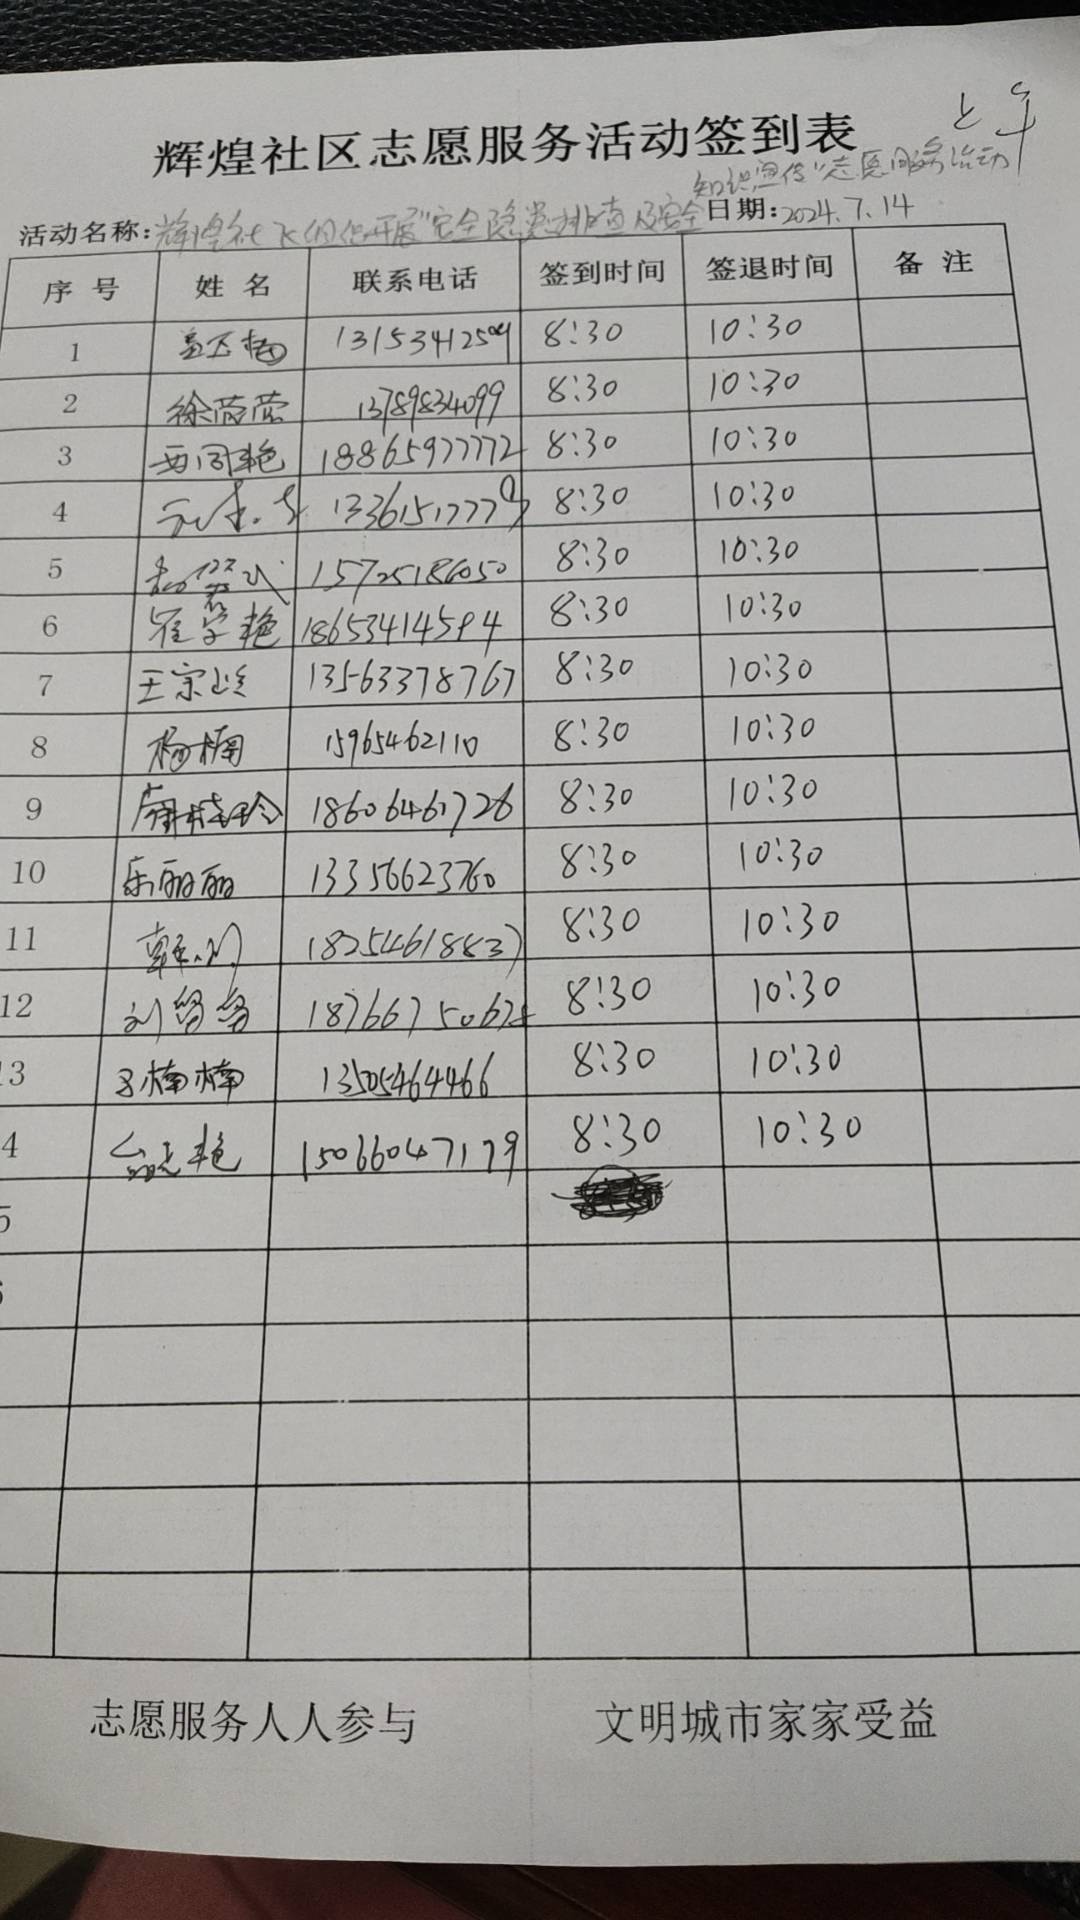 上午
辉煌社区志愿服务活动签到表
知识宣传"志愿服务活动
活动名称:辉煌社区组织开展"安全隐患排查及安全 日期:2024.7.14
序号 姓名 联系电话 签到时间 签退时间 备注
1 13153412509 8:30 10:30
2 徐莹莹 13789834099 8:30 10:30
3 18865977772 8:30 10:30
4 8:30 10:30
5 15725186050 8:30 10:30
6 崔学艳 18653414594 8:30 10:30
7 王宗 13563378767 8:30 10:30
8 杨楠 15965462110 8:30 10:30
9 18606461726 8:30 10:30
10 乐丽丽 13356623760 8:30 10:30
11 18254618837 8:30 10:30
12 刘 8:30 10:30
13 楠楠 13505464466 8:30 10:30
4 艳 15066047179 8:30 10:30
5
志愿服务人人参与 文明城市家家受益